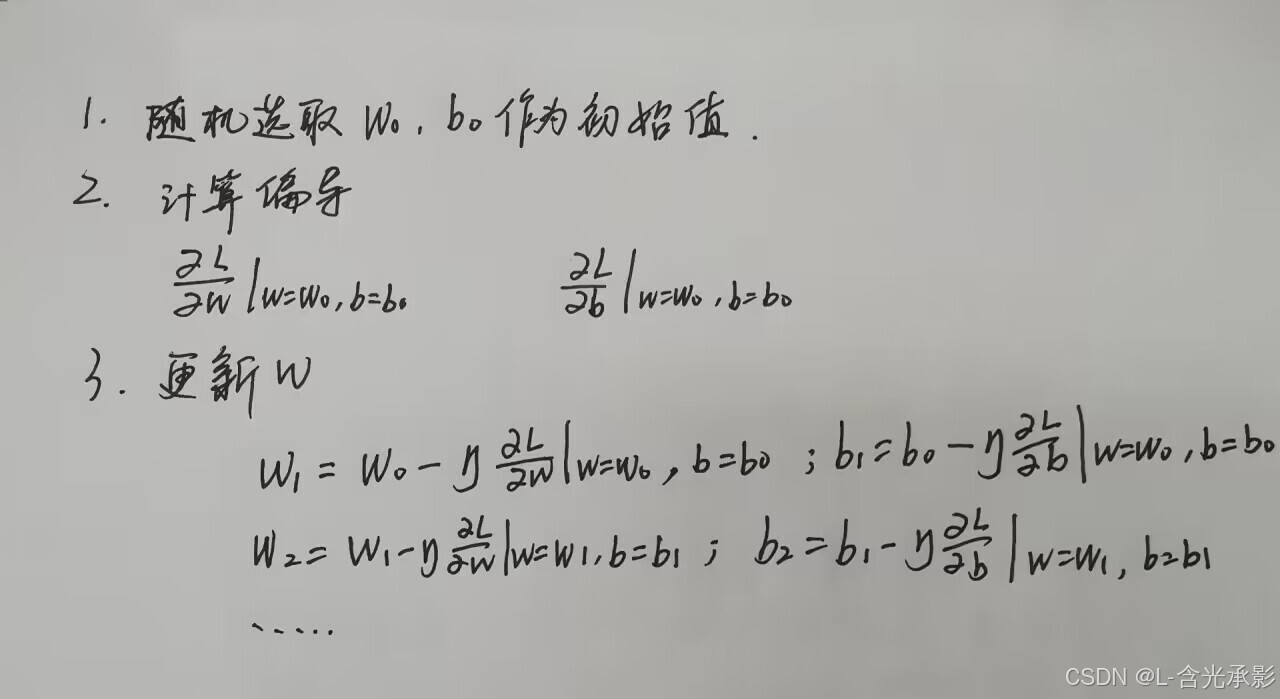 1. 随机选取 w₀, b₀ 作为初始值.
2. 计算偏导
∂L/∂w |w=w₀, b=b₀ ∂L/∂b |w=w₀, b=b₀
3. 更新 w
w₁ = w₀ - η ∂L/∂w |w=w₀, b=b₀ ; b₁ = b₀ - η ∂L/∂b |w=w₀, b=b₀
w₂ = w₁ - η ∂L/∂w |w=w₁, b=b₁ ; b₂ = b₁ - η ∂L/∂b |w=w₁, b=b₁
.....
CSDN @L-含光承影